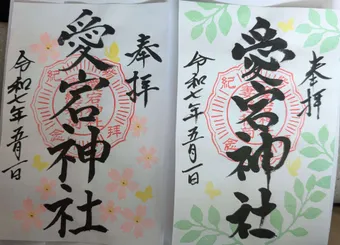 奉拝
愛宕神社
令和七年五月一日
奉拝
愛宕神社
令和七年五月一日